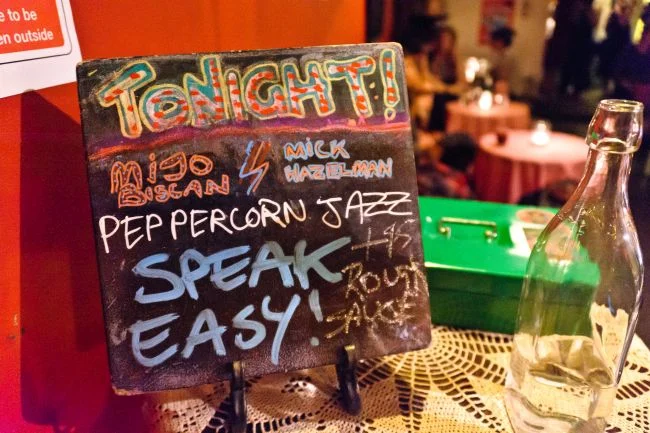 e to be
en outside
TONIGHT!
MIJO
BISCAN
MICK
HAZELMAN
PEPPERCORN JAZZ
SPEAK
EASY!
ROUX
SAUCE